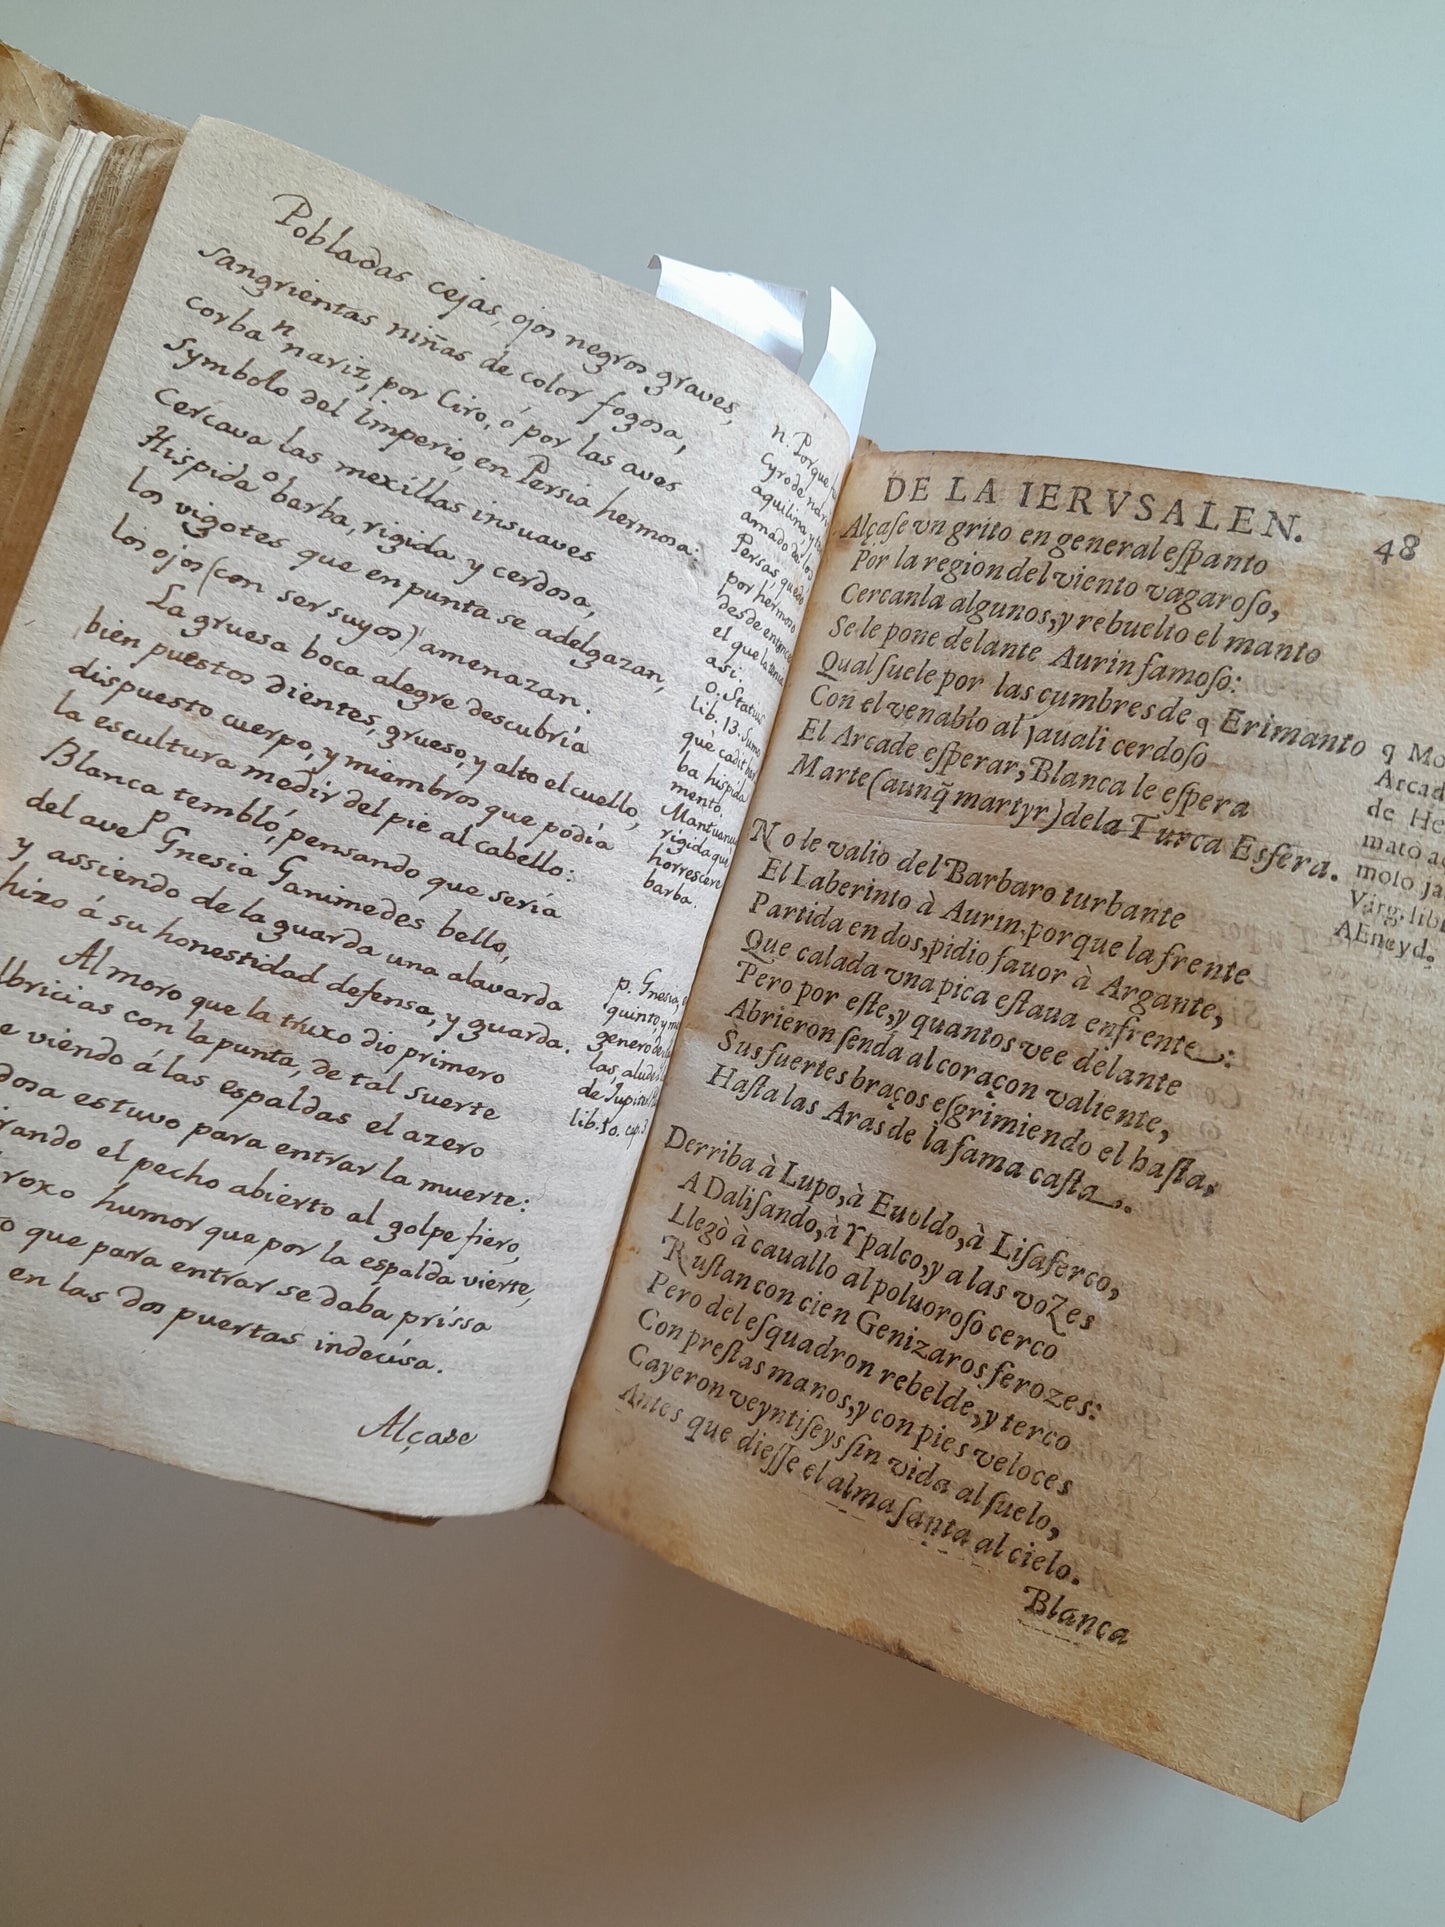 Pobladas cejas, ojos negros graves,
sangrientas niñas de color fogosa,
corba n nariz, por Ciro, ó por las aves
symbolo del Imperio, en Persia hermosa:
cercava las mexillas insuaves
Hispida o barba, rigida y cerdosa,
los vigotes que en punta se adelgazan,
los ojos (con ser suyos) amenazan.
La gruesa boca alegre descubria
bien puestos dientes, grueso, y alto el cuello,
dispuesto cuerpo, y miembros que podia
la escultura medir del pie al cabello:
Blanca tembló, pensando que sería
del ave p Gnesia Ganimedes bello,
y assiendo de la guarda una alavarda
hizo á su honestidad defensa, y guarda.
Al moro que la truxo dio primero
lbricias con la punta, de tal suerte
e viendo á las espaldas el azero
dosa estuvo para entrar la muerte:
rando el pecho abierto al golpe fiero,
roxo humor que por la espalda vierte,
o que para entrar se daba príssa
en las dos puertas indecisa.
Alçase
n. Porque
Cyro de
aquilina y
amado de los
Persas quedo
por hermoso
desde
el que la
asi.
o. Statius
lib. 13.
què cadit
ba hispida
mento.
rigida que
horrescere
barba.
p. Gnesia,
quinto, y
genero de
las, alude
de Jupiter
lib. 10.
DE LA IERVSALEN. 48
Alçaſe vn grito en general eſpanto
Por la region del viento vagaroſo,
Cercanla algunos, y rebuelto el manto
Se le pone delante Aurin famoſo:
Qual ſuele por las cumbres de q Erimanto
Con el venablo al jauali cerdoſo
El Arcade eſperar, Blanca le eſpera
Marte (aunq̃ martyr) de la Turca Esfera.
No le valio del Barbaro turbante
El Laberinto à Aurin, porque la frente
Partida en dos, pidio fauor à Argante,
Que calada vna pica eſtaua enfrente:
Pero por eſte, y quantos vee delante
Abrieron ſenda al coraçon valiente,
Sus fuertes braços eſgrimiendo el haſta,
Haſta las Aras de la fama caſta.
Derriba à Lupo, à Euoldo, à Liſaferco,
A Daliſando, à Ypalco, y a las voZes
Llegò à cauallo al poluoroſo cerco
Ruſtan con cien Genizaros ferozes:
Pero del eſquadron rebelde, y terco
Con preſtas manos, y con pies veloces
Cayeron veyntiſeys ſin vida al ſuelo,
Antes que dieſſe el alma ſanta al cielo.
Blanca
q Mo
Arcad
de He
mato
molo ja
Virg. lib
AEneyd.